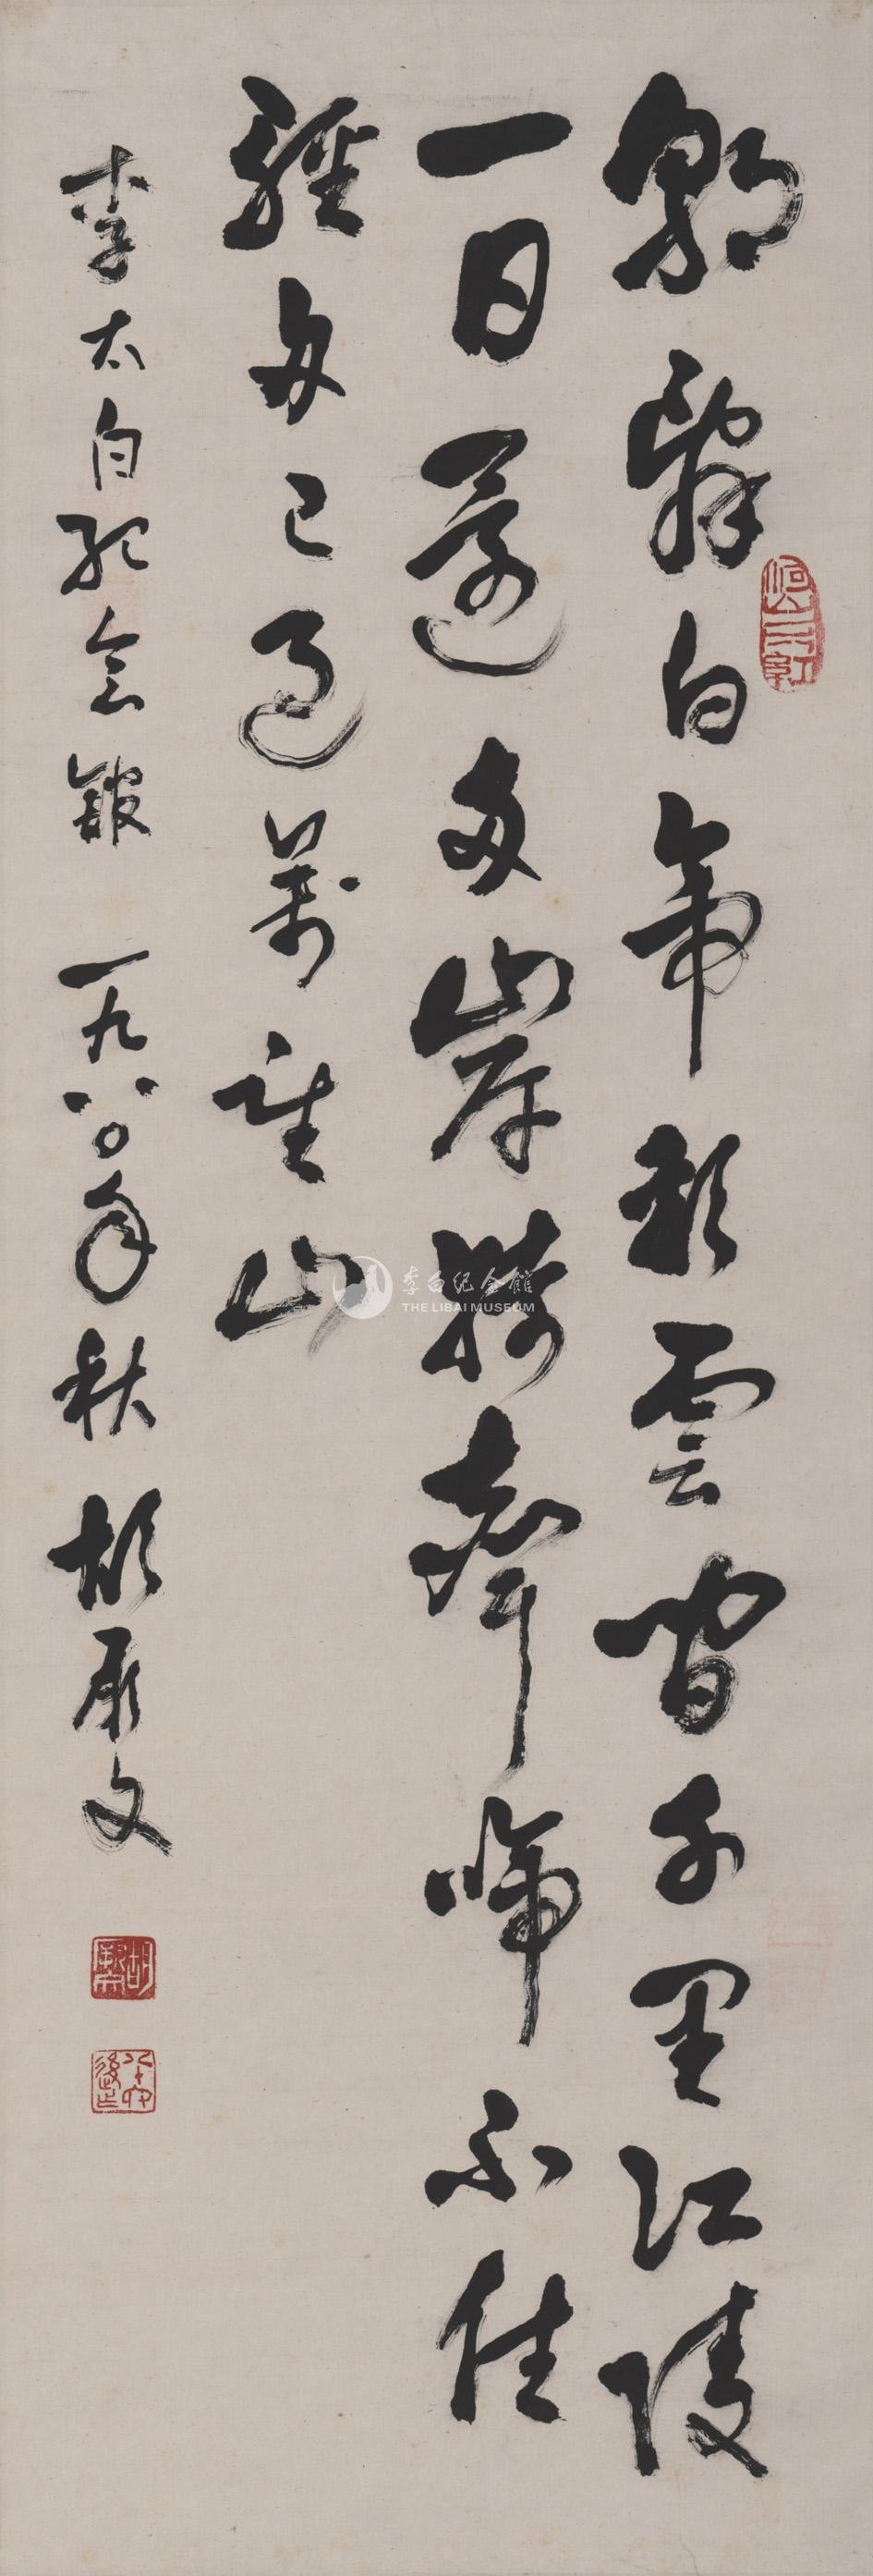 朝辞白帝彩雲間千里江陵
一日還兩岸猿聲啼不住
輕舟已過萬重山
李太白紀念館 一九八〇年秋 胡厥文
李白纪念馆
THE LIBAI MUSEUM